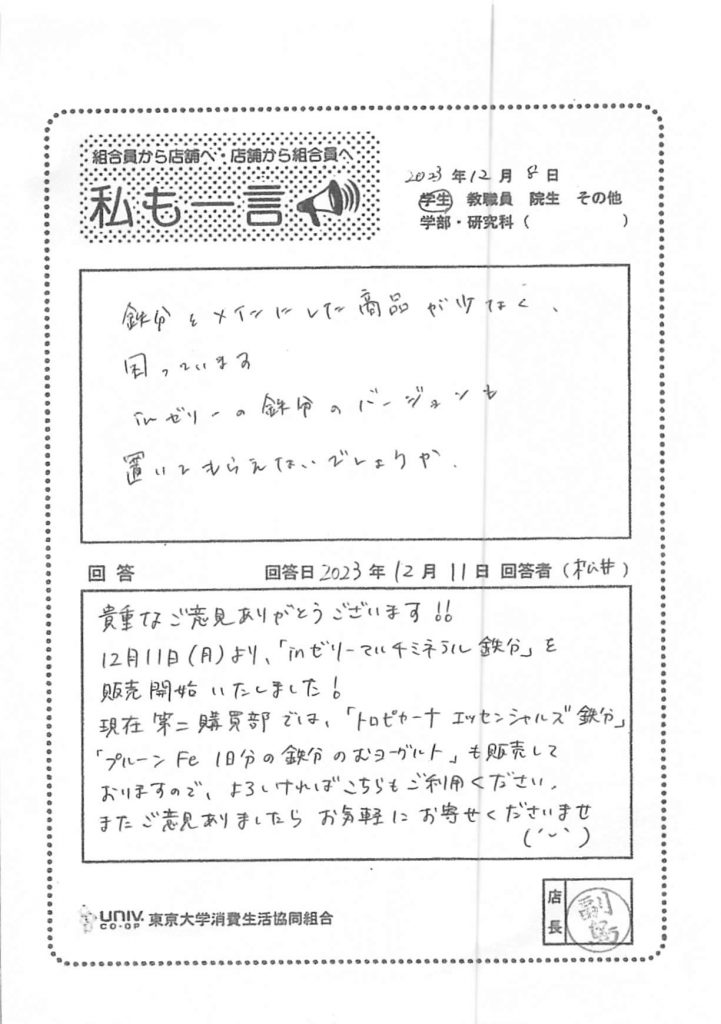 組合員から店舗へ・店舗から組合員へ
私も一言
2023年12月8日
学生 教職員 院生 その他
学部・研究科( )
鉄分をメインにした商品が少なく、
困っています
inゼリーの鉄分のバージョンも
置いてもらえないでしょうか.
回答 回答日2023年12月11日 回答者(松井)
貴重なご意見ありがとうございます!!
12月11日(月)より、「inゼリーマルチミネラル鉄分」を
販売開始いたしました!
現在第二購買部では、「トロピカーナ エッセンシャルズ鉄分」
「プルーンFe 1日分の鉄分のむヨーグルト」も販売して
おりますので、よろしければこちらもご利用ください.
またご意見ありましたらお気軽にお寄せくださいませ
UNIV. CO-OP 東京大学消費生活協同組合
店長